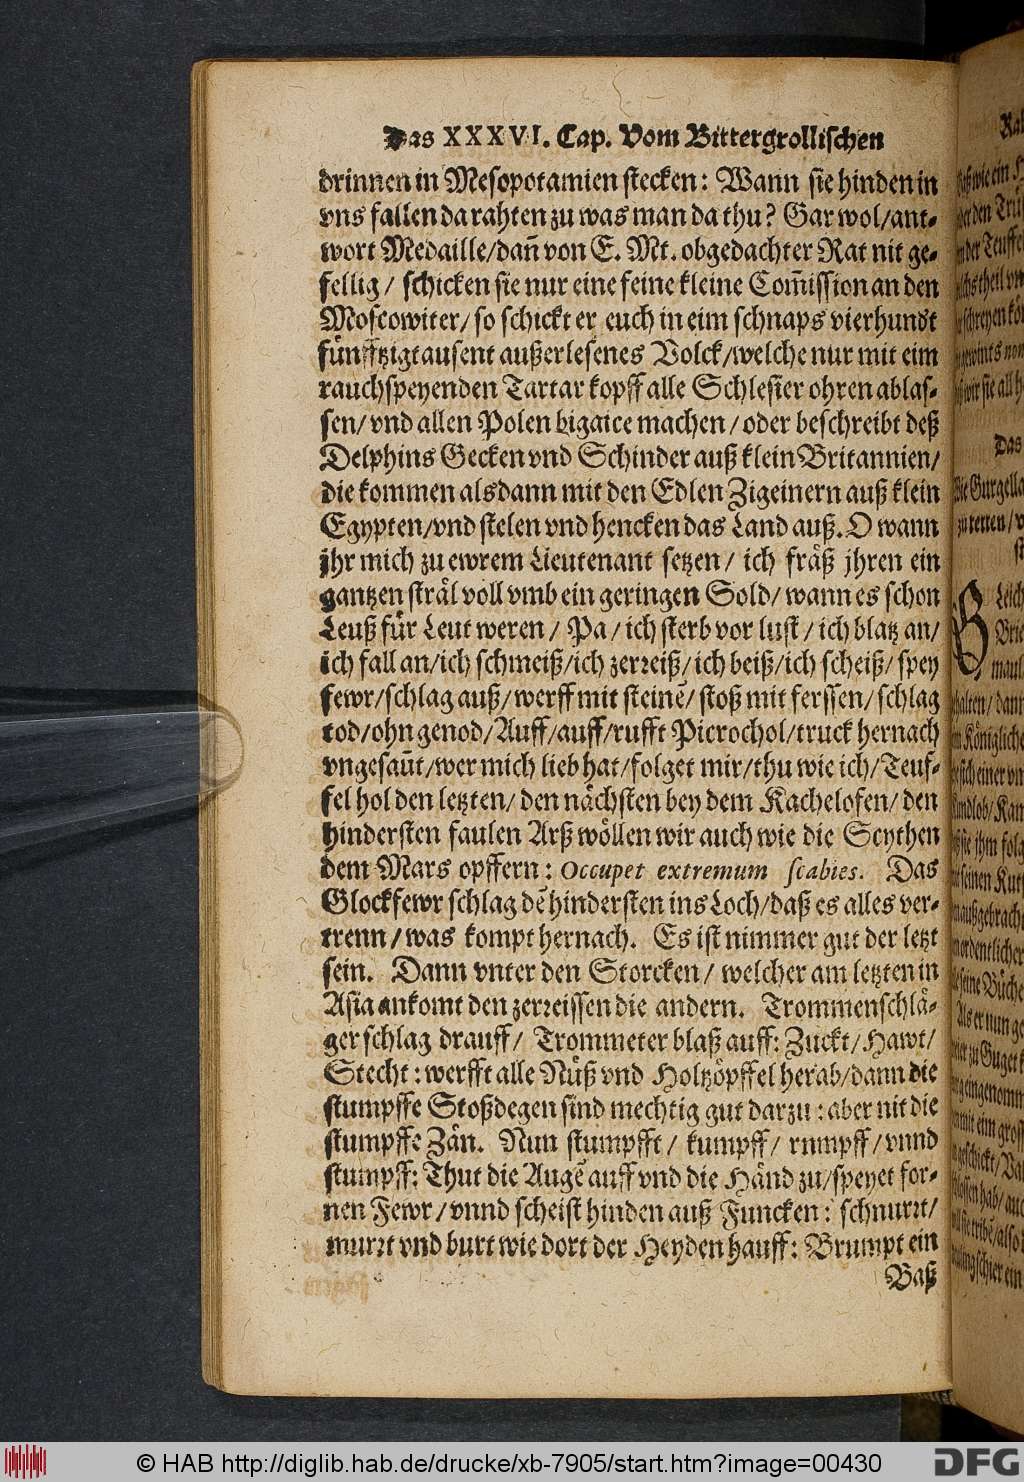 Das XXXVI. Cap. Vom Bittergrollischen
drinnen in Mesopotamien stecken: Wann sie hinden in
vns fallen da rahten zu was man da thu? Gar wol/ant-
wort Medaille/dañ von E. Mt. obgedachter Rat nit ge-
fellig / schicken sie nur eine feine kleine Com̃ission an den
Moscowiter/ so schickt er euch in eim schnaps vierhundt
fünfftzigtausent außerlesenes Volck/welche nur mit eim
rauchspeyenden Tartar kopff alle Schlesier ohren ablas-
sen/ vnd allen Polen bigaice machen / oder beschreibt deß
Delphins Gecken vnd Schinder auß klein Britannien/
die kommen alsdann mit den Edlen Zigeinern auß klein
Egypten/vnd stelen vnd hencken das Land auß. O wann
jhr mich zu ewrem Lieutenant setzen / ich fräß jhren ein
gantzen sträl voll vmb ein geringen Sold/ wann es schon
Leuß für Leut weren / Pa / ich sterb vor lust / ich blatz an/
ich fall an/ich schmeiß/ich zerreiß/ich beiß/ich scheiß/ spey
fewr/schlag auß/werff mit steinẽ/ stoß mit ferssen/ schlag
tod/ohn genod/Auff/auff/rufft Picrochol/truck hernach
vngesaũt/wer mich lieb hat/folget mir/thu wie ich/Teuf-
fel hol den letzten/ den nächsten bey dem Kachelofen/ den
hindersten faulen Arß wöllen wir auch wie die Scythen
dem Mars opffern: Occupet extremum scabies. Das
Glockfewr schlag dẽ hindersten ins Loch/daß es alles ver-
trenn/was kompt hernach. Es ist nimmer gut der letzt
sein. Dann vnter den Storcken/ welcher am letzten in
Asia ankomt den zerreissen die andern. Trommenschlä-
ger schlag drauff/ Trommeter blaß auff: Zuckt/Hawt/
Stecht: werfft alle Nüß vnd Holtzöpffel herab/dann die
stumpffe Stoßdegen sind mechtig gut darzu: aber nit die
stumpffe Zän. Nun stumpfft/ kumpff/ rumpff/vnnd
stumpff: Thut die Augẽ auff vnd die Händ zu/speyet for-
nen Fewr/vnnd scheist hinden auß Funcken: schnurrt/
murrt vnd burt wie dort der Heyden hauff: Brumpt ein
Baß
© HAB http://diglib.hab.de/drucke/xb-7905/start.htm?image=00430
DFG